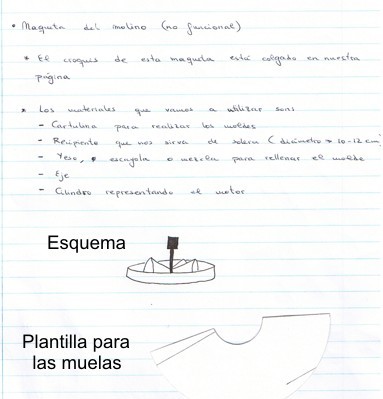 • Maqueta del molino (no funcional)
* El croquis de esta maqueta está colgado en nuestra
página
* Los materiales que vamos a utilizar son:
- Cartulina para realizar los moldes
- Recipiente que nos sirva de solera (diámetro → 10-12 cm)
- Yeso, escayola o mezcla para rellenar el molde
- Eje
- Cilindro representando el motor
Esquema
Plantilla para
las muelas